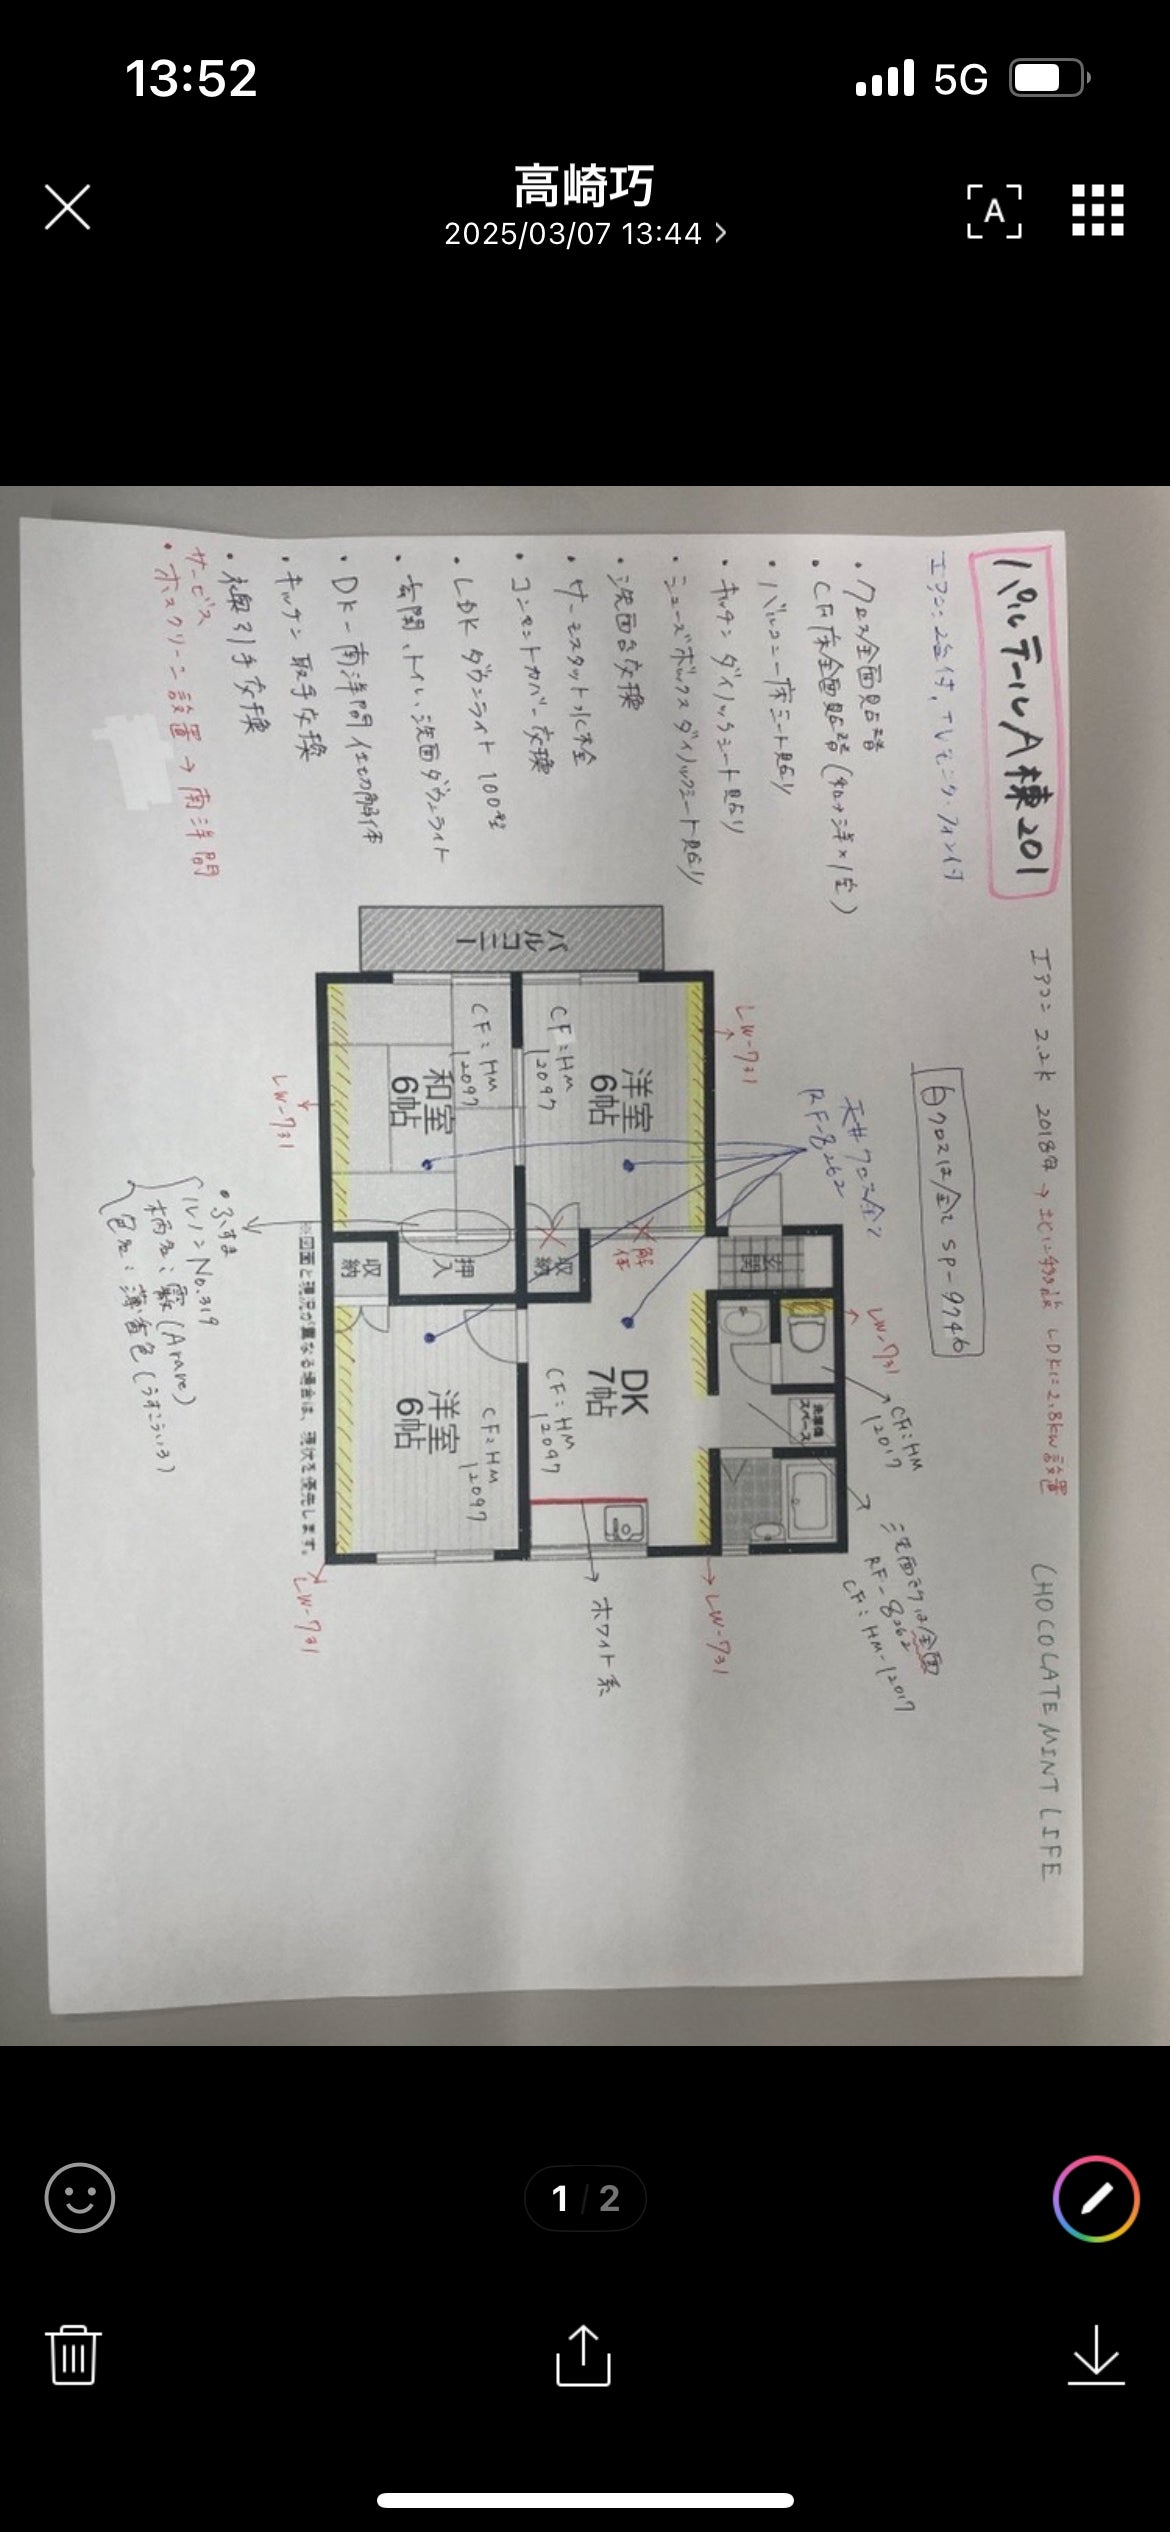 13:52
5G
高崎巧
2025/03/07 13:44
A
パルテールA棟201
エアコン2台付、TVモニターフォン付
エアコン 2.2k 2018年 → LDKに2.8kw設置
CHOCOLATE MINT LIFE
白クロスは全て SP-9746
・クロス全面貼替
・CF床全面貼替(和+洋×1室)
・バルコニー床シート貼り
・キッチン ダイノックシート貼り
・シューズボックス ダイノックシート貼り
・洗面台交換
・サーモスタット水栓
・コンセントカバー交換
・LDK ダウンライト 100型
・玄関、トイレ、洗面ダウンライト
・DK-南洋間 仕切解体
・キッチン取手交換
・襖引手交換
サービス
・ホスクリーン設置→南洋間
天井クロス全て
RF-8262
バルコニー
洋室
6帖
CF:HM
12097
和室
6帖
CF:HM
12097
LW-731
LW-731
解体
玄関
収納
押入
収納
DK
7帖
CF:HM
12097
洋室
6帖
CF:HM
12097
洗濯機
スペース
LW-731
CF:HM
12017
洗面クロスは全面
RF-8262
CF:HM-12017
LW-731
LW-731
ホワイト系
・ふすま
ルノン No.319
柄名:霰(Arare)
色名:薄香色(うすこういろ)
※図面と現況が異なる場合は、現状を優先します。
1 / 2